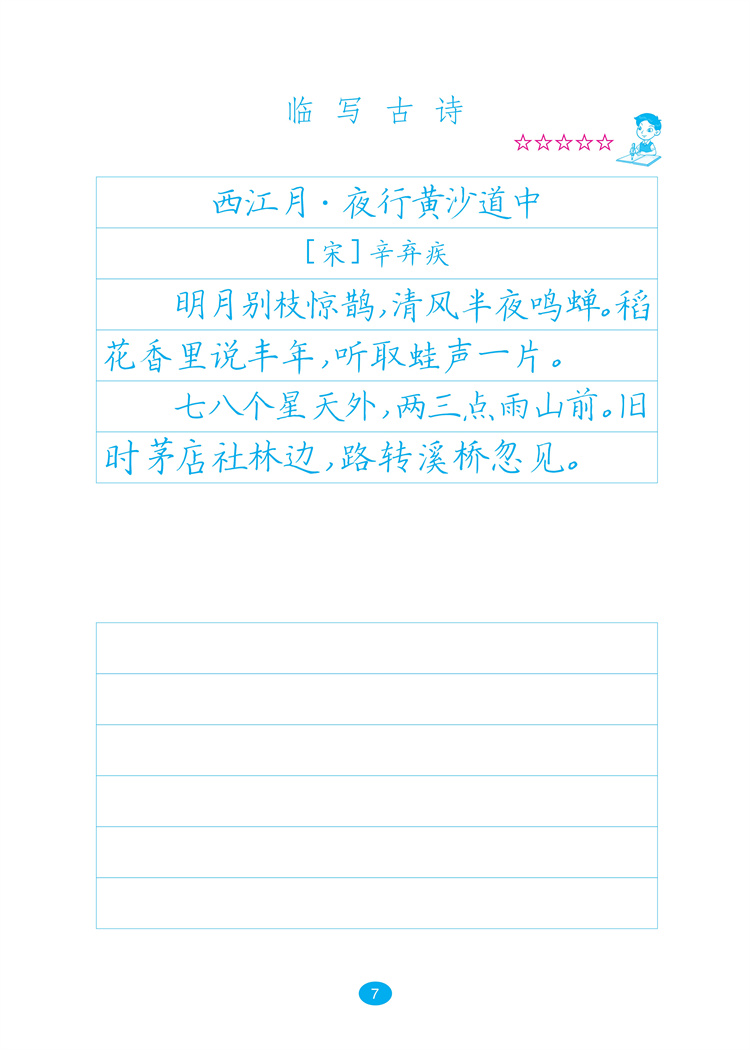 临写古诗
西江月·夜行黄沙道中
［宋］辛弃疾
明月别枝惊鹊，清风半夜鸣蝉。稻
花香里说丰年，听取蛙声一片。
七八个星天外，两三点雨山前。旧
时茅店社林边，路转溪桥忽见。
7